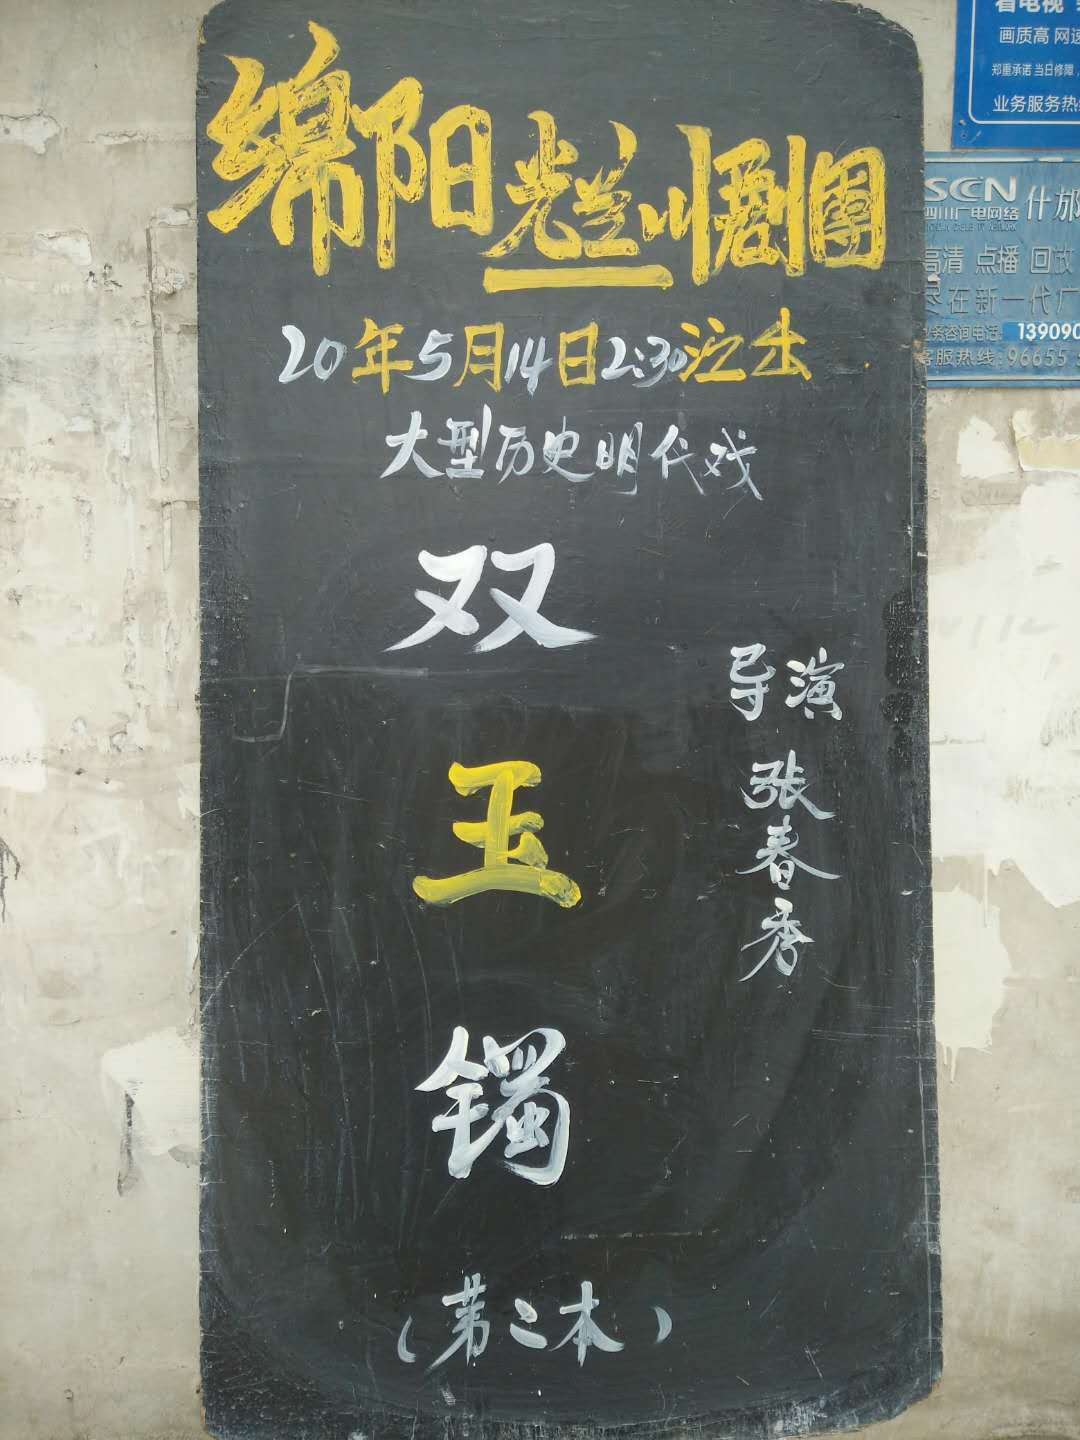 绵阳光兰川剧團
20年5月14日2:30泣出
大型历史明代戏
双
玉
镯
导演
张春秀
(第二本)
画质高 网速
郑重承诺 当日修障,
业务服务热
SCN
四川广电网络
什邡
高清 点播 回放
尽在新一代广
业务咨询电话: 13909
客服热线:96655